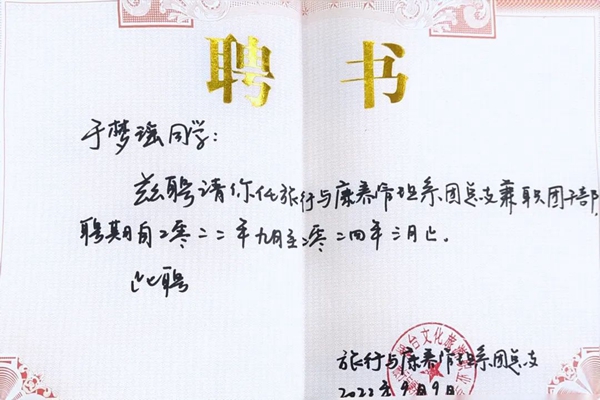 聘书
于梦瑶同学：
兹聘请你任旅行与康养管理系团总支兼职团干部，
聘期自二零二二年九月至二零二四年三月止。
此聘
旅行与康养管理系团总支
2022年9月9日